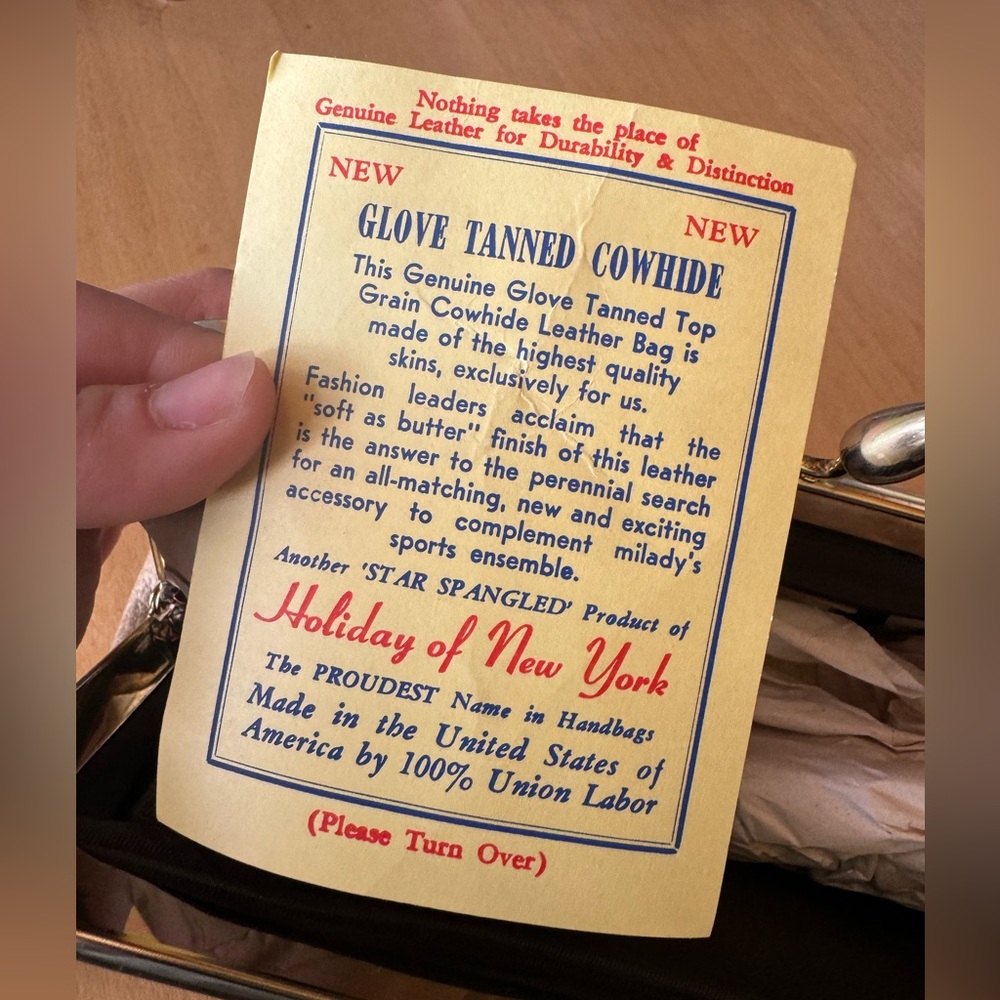 Nothing takes the place of
Genuine Leather for Durability & Distinction
NEW
NEW
GLOVE TANNED COWHIDE
This Genuine Glove Tanned Top
Grain Cowhide Leather Bag is
made of the highest quality
skins, exclusively for us.
Fashion leaders acclaim that the
"soft as butter" finish of this leather
is the answer to the perennial search
for an all-matching, new and exciting
accessory to complement milady's
sports ensemble.
Another 'STAR SPANGLED' Product of
Holiday of New York
The PROUDEST Name in Handbags
Made in the United States of
America by 100% Union Labor
(Please Turn Over)